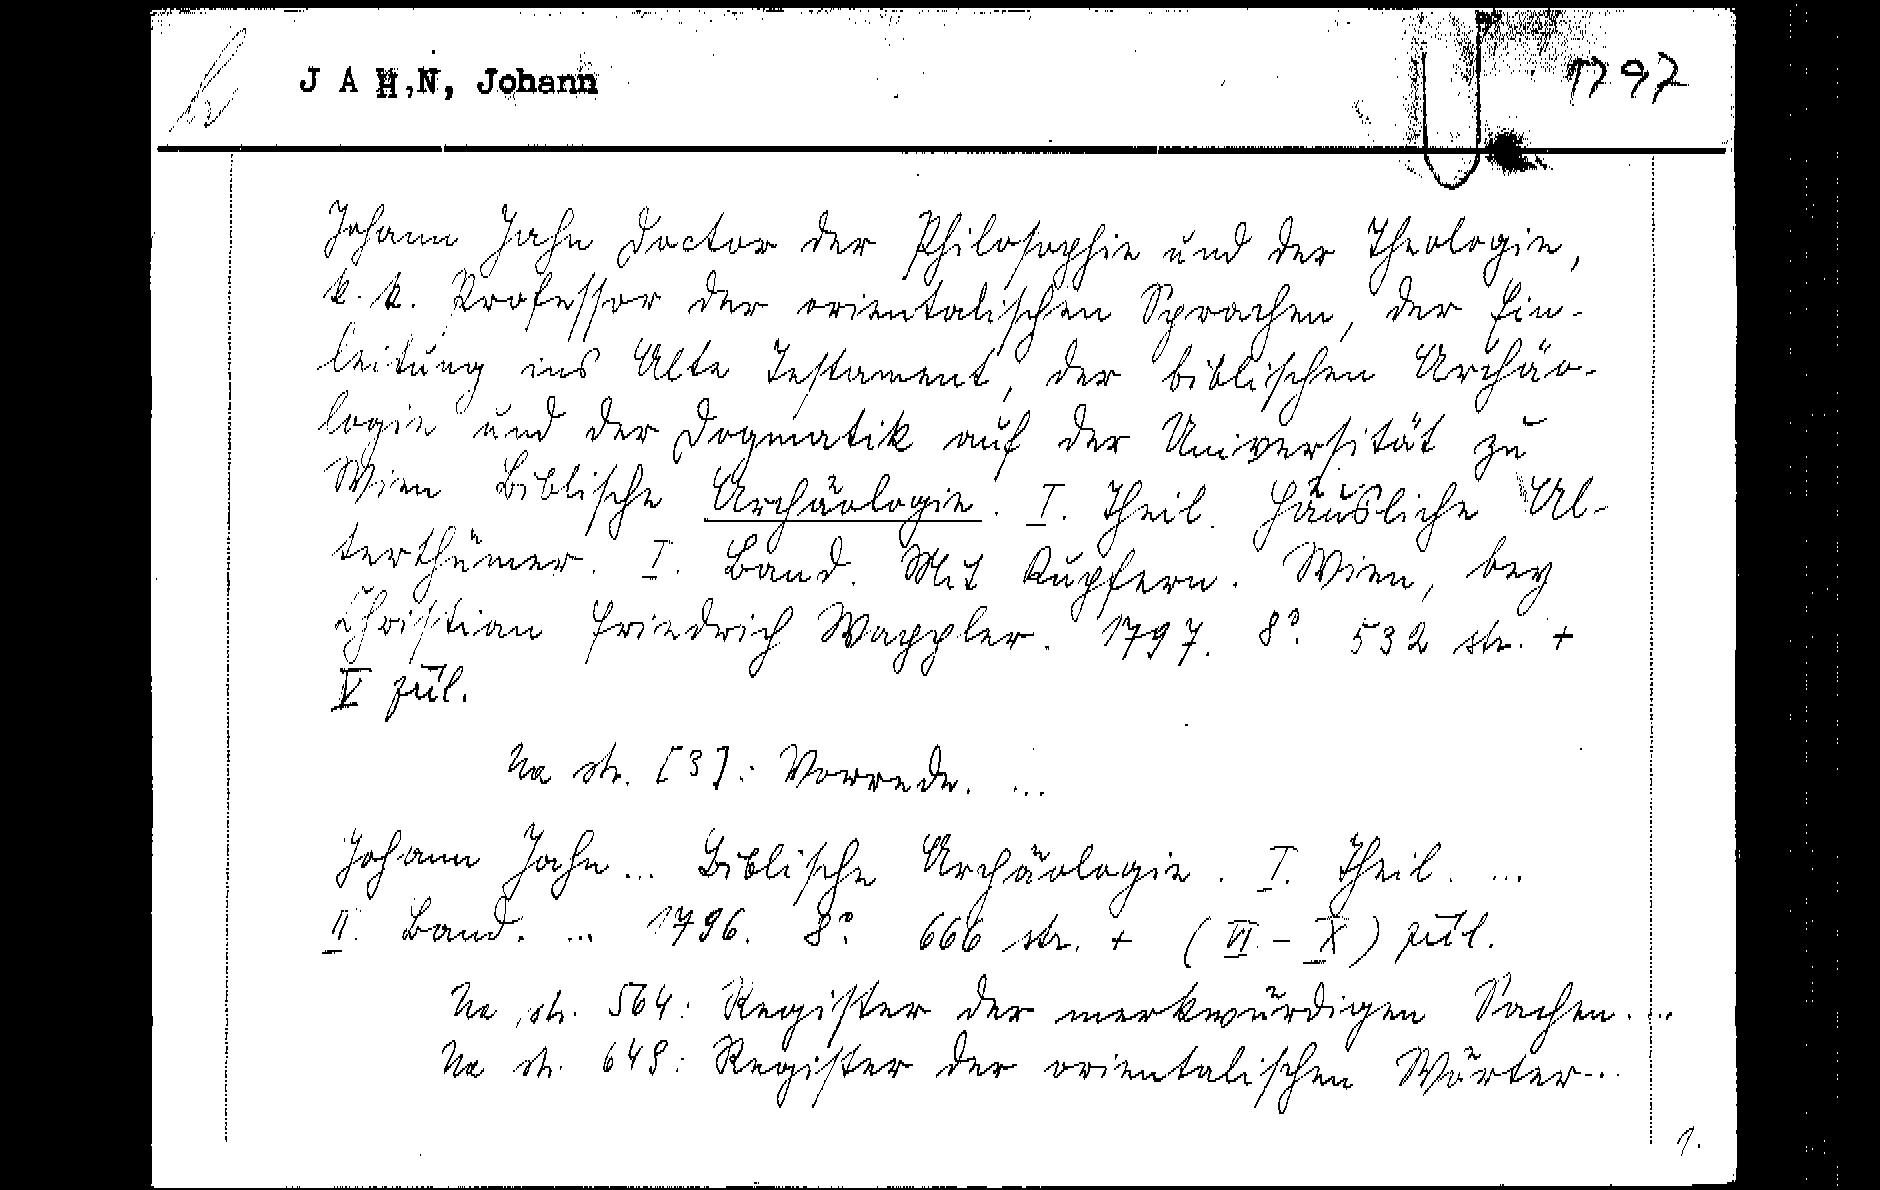 JAHN, Johann
1797
Johann Jahn Doctor der Philosophie und der Theologie,
k. k. Professor der orientalischen Sprachen, der Ein-
leitung ins Alte Testament, der biblischen Archäo-
logie und der Dogmatik auf der Universität zu
Wien Biblische Archäologie. I. Theil. Häusliche Al-
terthümer. I. Band. Mit Kupfern. Wien, bey
Christian Friedrich Wappler. 1797. 8°. 532 str. +
V příl.
Na str. [3]: Vorrede. ...
Johann Jahn ... Biblische Archäologie. I. Theil. ...
II. Band. ... 1796. 8°. 666 str. + (VI - X) příl.
Na str. 564: Register der merkwürdigen Sachen. ...
Na str. 649: Register der orientalischen Wörter...
1.